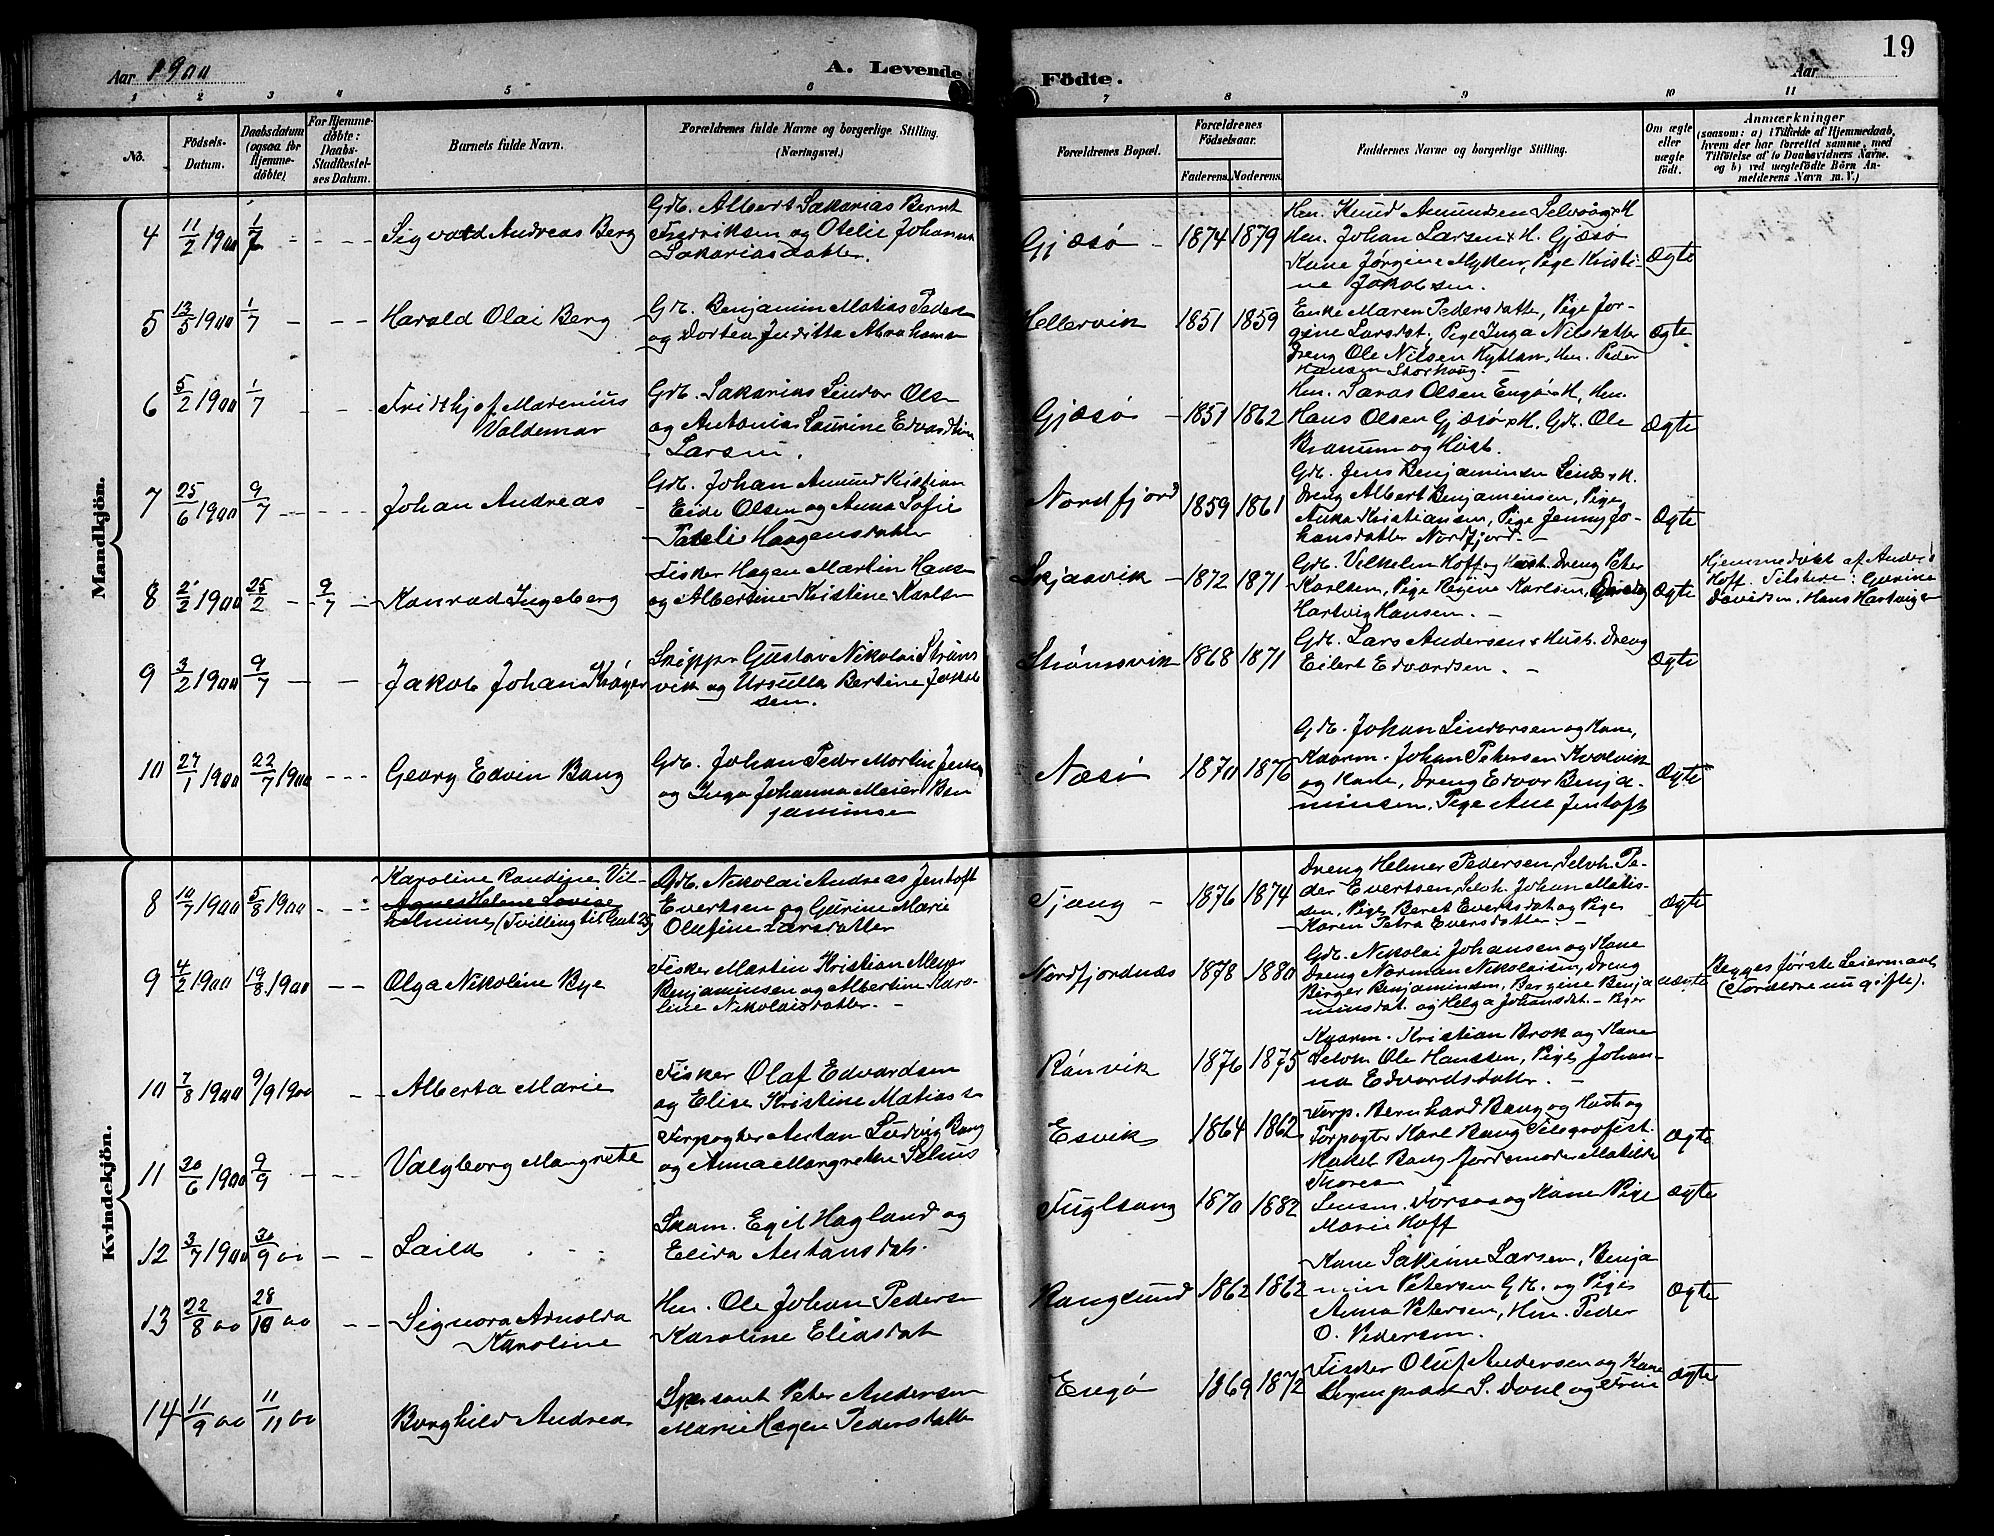 Aar 1900
A. Levende
Födte.
Aar
19
1 2 3 4 5 6 7 8 9 10 11
No.
Födsels-
Datum.
Daabsdatum
(ogsaa for
Hjemme-
döbte)
For Hjemme-
döbte:
Daabs-
Stadfæstel-
ses Datum.
Barnets fulde Navn.
Forældrenes fulde Navne og borgerlige Stilling.
(Næringsvei.)
Forældrenes Bopæl.
Forældrenes
Födselsaar.
Faderens. Moderens.
Faddernes Navne og borgerlige Stilling.
Om ægte
eller
uægte
födt.
Anmærkninger
(saasom: a) i Tilfælde af Hjemmedaab,
hvem der har forrettet samme, med
Tilföielse af to Daabsvidners Navne.
og b) ved uægtefödte Börn An-
melderens Navn m. V.)
Mandkjön.
4 11/2 1900 1/7 - - - Sigvald Andreas Berg
Gdb. Albert Sakarias Bernt
Fredriksen og Otelie Johanna
Sakariasdatter.
Gjæsø - 1874 1879
Hm. Knud Amundsen Selsøg
Hm. Johan Larsen & H. Gjæsø
Kone Jørgine Myken, Pige Kristi-
ne Jakobsen.
Ægte
5 13/5 1900 1/7 - - - Harald Olai Berg
Gdb. Benjamin Matias Peders
og Dortea Juditta Abrahams
Hellervik 1851 1859
Enke Maren Pedersdatter, Pige Jor-
gine Larsdat, Pige Inga Nilsdatter
Dreng Ole Nilsen, Hm. Peder
Hansen Storhaug. -
Ægte
6 5/2 1900 1/7 - - Fridthjof Marenius
Valdemar
Gdb. Sakarias Sindor Ols
og Antonia Laurine Edvardine
Larsen.
Gjæsø - 1851 1862
Hm. Olsen Engø & H, Hm.
Hans Olsen Gjæsø & H. Gdb. Ole
og Høst.
Ægte
7 25/6 1900 9/7 - - - Johan Andreas -
Gdb. Johan Amund Kristian
Eide Olsen og Anna Sofie
Haagensdatter
Nordfjord 1859 1861
Gdb. Jens Benjaminsen
Dreng Albert Benjaminsen, Pige
Anna Kristiansen, Pige Jenny Jo-
hansdatter Nordfjord. -
Ægte
8 2/2 1900 25/2 - 9/7 - Konrad Ingeberg
Fisker Hagen Martin Hans
og Albertine Kristine Karls
Skjaavik - 1872 1871
Gdb. Vilhelm Hoff og Hust. Dreng Peter
Karlsen, Pige Regine Karlsen, Dreng
Hartvig Hansen. -
Ægte
Hjemmedøbt af Anders
Hoff. Tilstede: Gurine
Davidsen, Hans Hartvigs
9 3/2 1900 9/7 - - Jakob Johan Krøyer
Skipper Gustav Nikolai Strøms
vik og Ursulla Bertine Jakob
sen.
Strømsvik 1868 1871
Gdb. Lars Andersen & Hust. Dreng
Eilert Edvardsen. -
Ægte
10 27/1 1900 22/7 1900 - - - Georg Edvin Bang
Gdb. Johan Peder Martin Jens
og Inga Johanna Meier Ben
jaminse
Næsø 1870 1876
Gdb. Johan Sindorsen og Kone,
Kaarm. Johan Petersen Kvalvik
og Kone, Dreng Edvar Benja-
minsen, Pige Ane Jentoft
Ægte
Kvindekjön.
8 10/7 1900 5/8 1900 - - - Karoline Randine Vil-
Agnes Helene Lovise
helmine (Tvilling til No 25)
Gdb. Nikolai Andreas Jentoft
Evertsen og Gurine Marie
Olufine Larsdatter
Tjong - 1876 1874
Dreng Helmer Pedersen, Selvh. Pe-
der Evertsen, Selvh. Johan Matis-
sen, Pige Beret Evertsdat og Pige
Karen Petra Eversdatter. -
Ægte
9 4/2 1900 19/8 1900 - - Olga Nikoline Bye
Fisker Martin Kristian Meyer
Benjaminsen og Albertine Karo-
line Nikolaisdatter. -
Nordfjordnæs 1878 1880
Gdb. Nikolai Johansen og Kone
Dreng Norman Nikolaisen, Dreng
Birger Benjaminsen, Bergine Benja
minsdat. og Helga Johansdat. - Piger
uægte
Begges første Leiermaal
(Forældrene nu gifte).
10 7/8 1900 9/9 1900 - - Alberta Marie
Fisker Olaf Edvardsen
og Elise Kristine Matiass
Rønvik 1876 1875
Kaarm. Kristian Brok og Kone
Selvh. Ole Hanssen, Pige Johan-
na Edvardsdatter. -
11 30/6 1900 9/9 - - Valgborg Margrete
Forpagter Anstan Ludvig Bang
og Anna Margrethe Selnis
Esvik 1864 1862
Forp. Bernhard Bang og Hust og
Forpagter Karl Bang, Telegrafist
Rakel Bang Jordemoder Matilde
Thores
Ægte
12 3/7 1900 30/9 00 - - Laila
Skom. Egil Hagland og
Elida Anstansdat.
Fuglsang 1870 1882
Lensm. Forsaa og Kone Pige
Marie Hoff
Ægte
13 22/8 00 28/10 00 - - Signora Arnolda
Karoline
Hm. Ole Johan Peders
Karoline Eliasdat
Ranglsund 1862 1862
Kone Sakrine Larsen, Benja
min Petersen Gdb. og Pige
Anna Petersen, Hm. Peder
O. Pedersen.
Ægte
14 11/9 00 11/11 00 Borghild Andrea
Peter Andersen
Marie Hagen Pedersdatter
Engø 1869 1872
Fisker Oluf Andersen og Kone
S. Dahl og Frue
Ægte